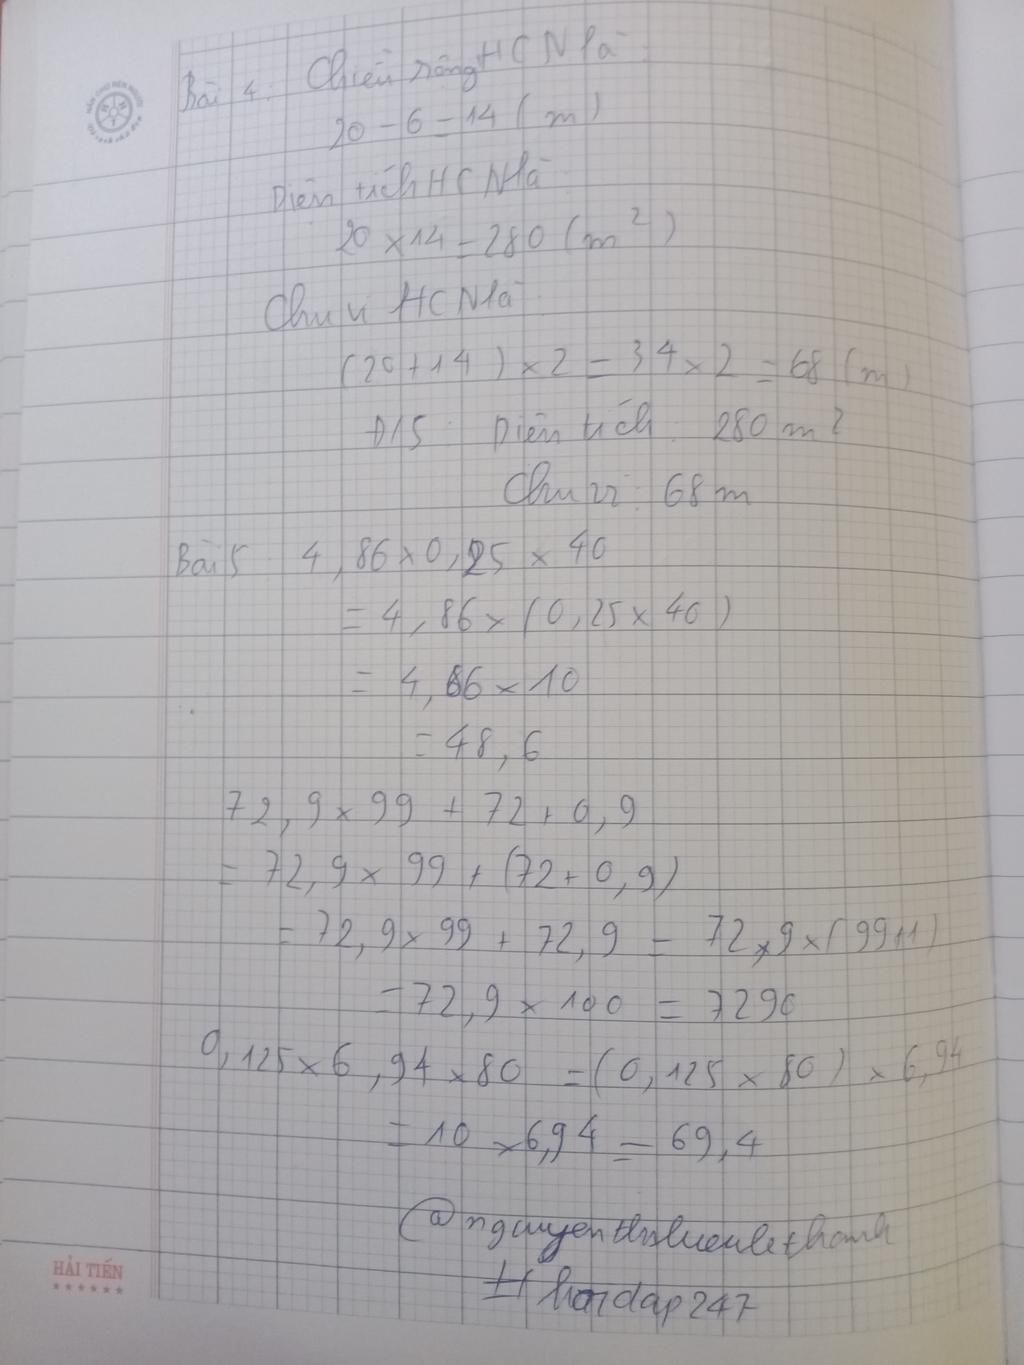 Bài 4: Chiều rộng HCN là:
20 - 6 = 14 (m)
Diện tích HCN là:
20 x 14 = 280 (m²)
Chu vi HCN là:
(20 + 14) x 2 = 34 x 2 = 68 (m)
Đ/S: Diện tích: 280 m²
Chu vi: 68 m
Bài 5 4,86 x 0,25 x 40
= 4,86 x (0,25 x 40)
= 4,86 x 10
= 48,6
72,9 x 99 + 72 + 0,9
= 72,9 x 99 + (72 + 0,9)
= 72,9 x 99 + 72,9 = 72,9 x (99+1)
= 72,9 x 100 = 7290
0,125 x 6,94 x 80 = (0,125 x 80) x 6,94
= 10 x 6,94 = 69,4
# hoidap247
HẢI TIẾN